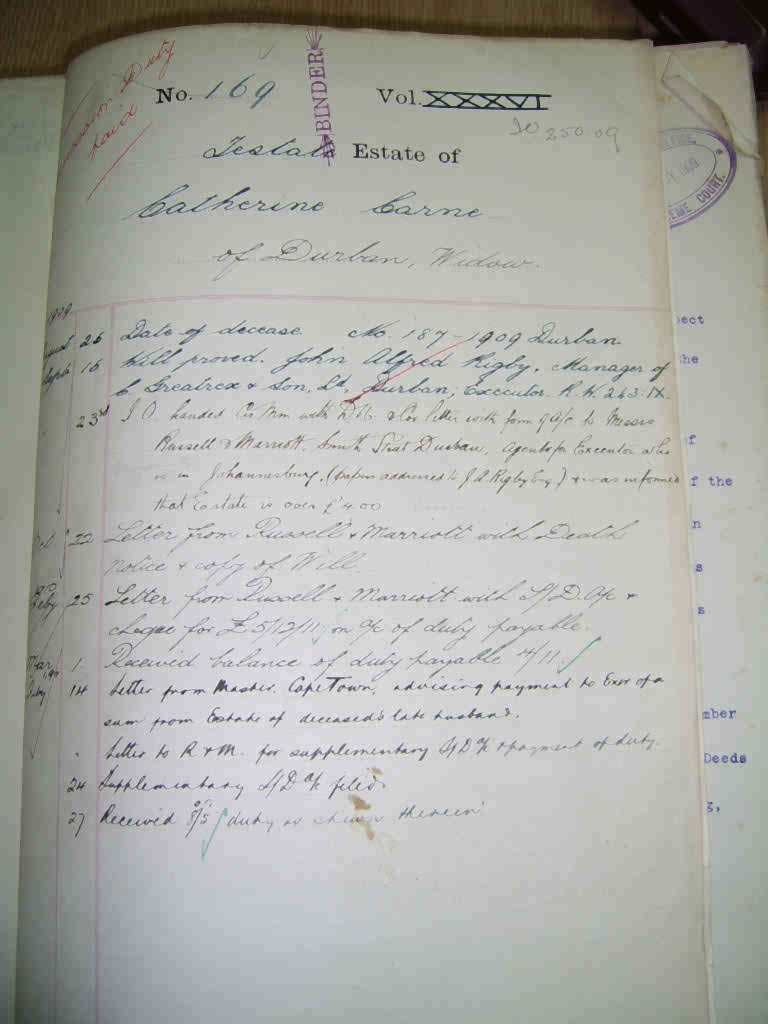 Succession Duty
paid
No. 169 BINDER Vol. XXXVI
250 09
Testate Estate of
Catherine Carne
of Durban, Widow.
COURT.
1909
August 25 Date of decease No. 187-1909 Durban
Septr 15 Will proved. John Alfred Rigby, Manager of
C. Greatrex & Son, Ld, Durban, Executor. R.W. 243.IX.
23rd handed with & Cov letter with form of A/c to Messrs
Russell & Marriott, Smith Street Durban, Agents for Executor who
is in Johannesburg. (papers addressed to J A Rigby Esq) & was informed
that Estate is over £400
Oct 22 Letter from Russell & Marriott with Death
notice & copy of Will.
1910
Feby 25 Letter from Russell & Marriott with S/D. A/c &
cheque for £5/12/11 on a/c of duty payable.
Mar 1. Received balance of duty payable 4/11.
July 14 Letter from Master, Cape Town, advising payment to Exor of a
sum from Estate of deceased's late husband.
" Letter to R & M. for supplementary S/D a/c & payment of duty.
24 Supplementary S/D a/c filed.
27 Received 8/5 duty as shewn therein
pect
the
f
f the
n
s
s
mber
Deeds
s,